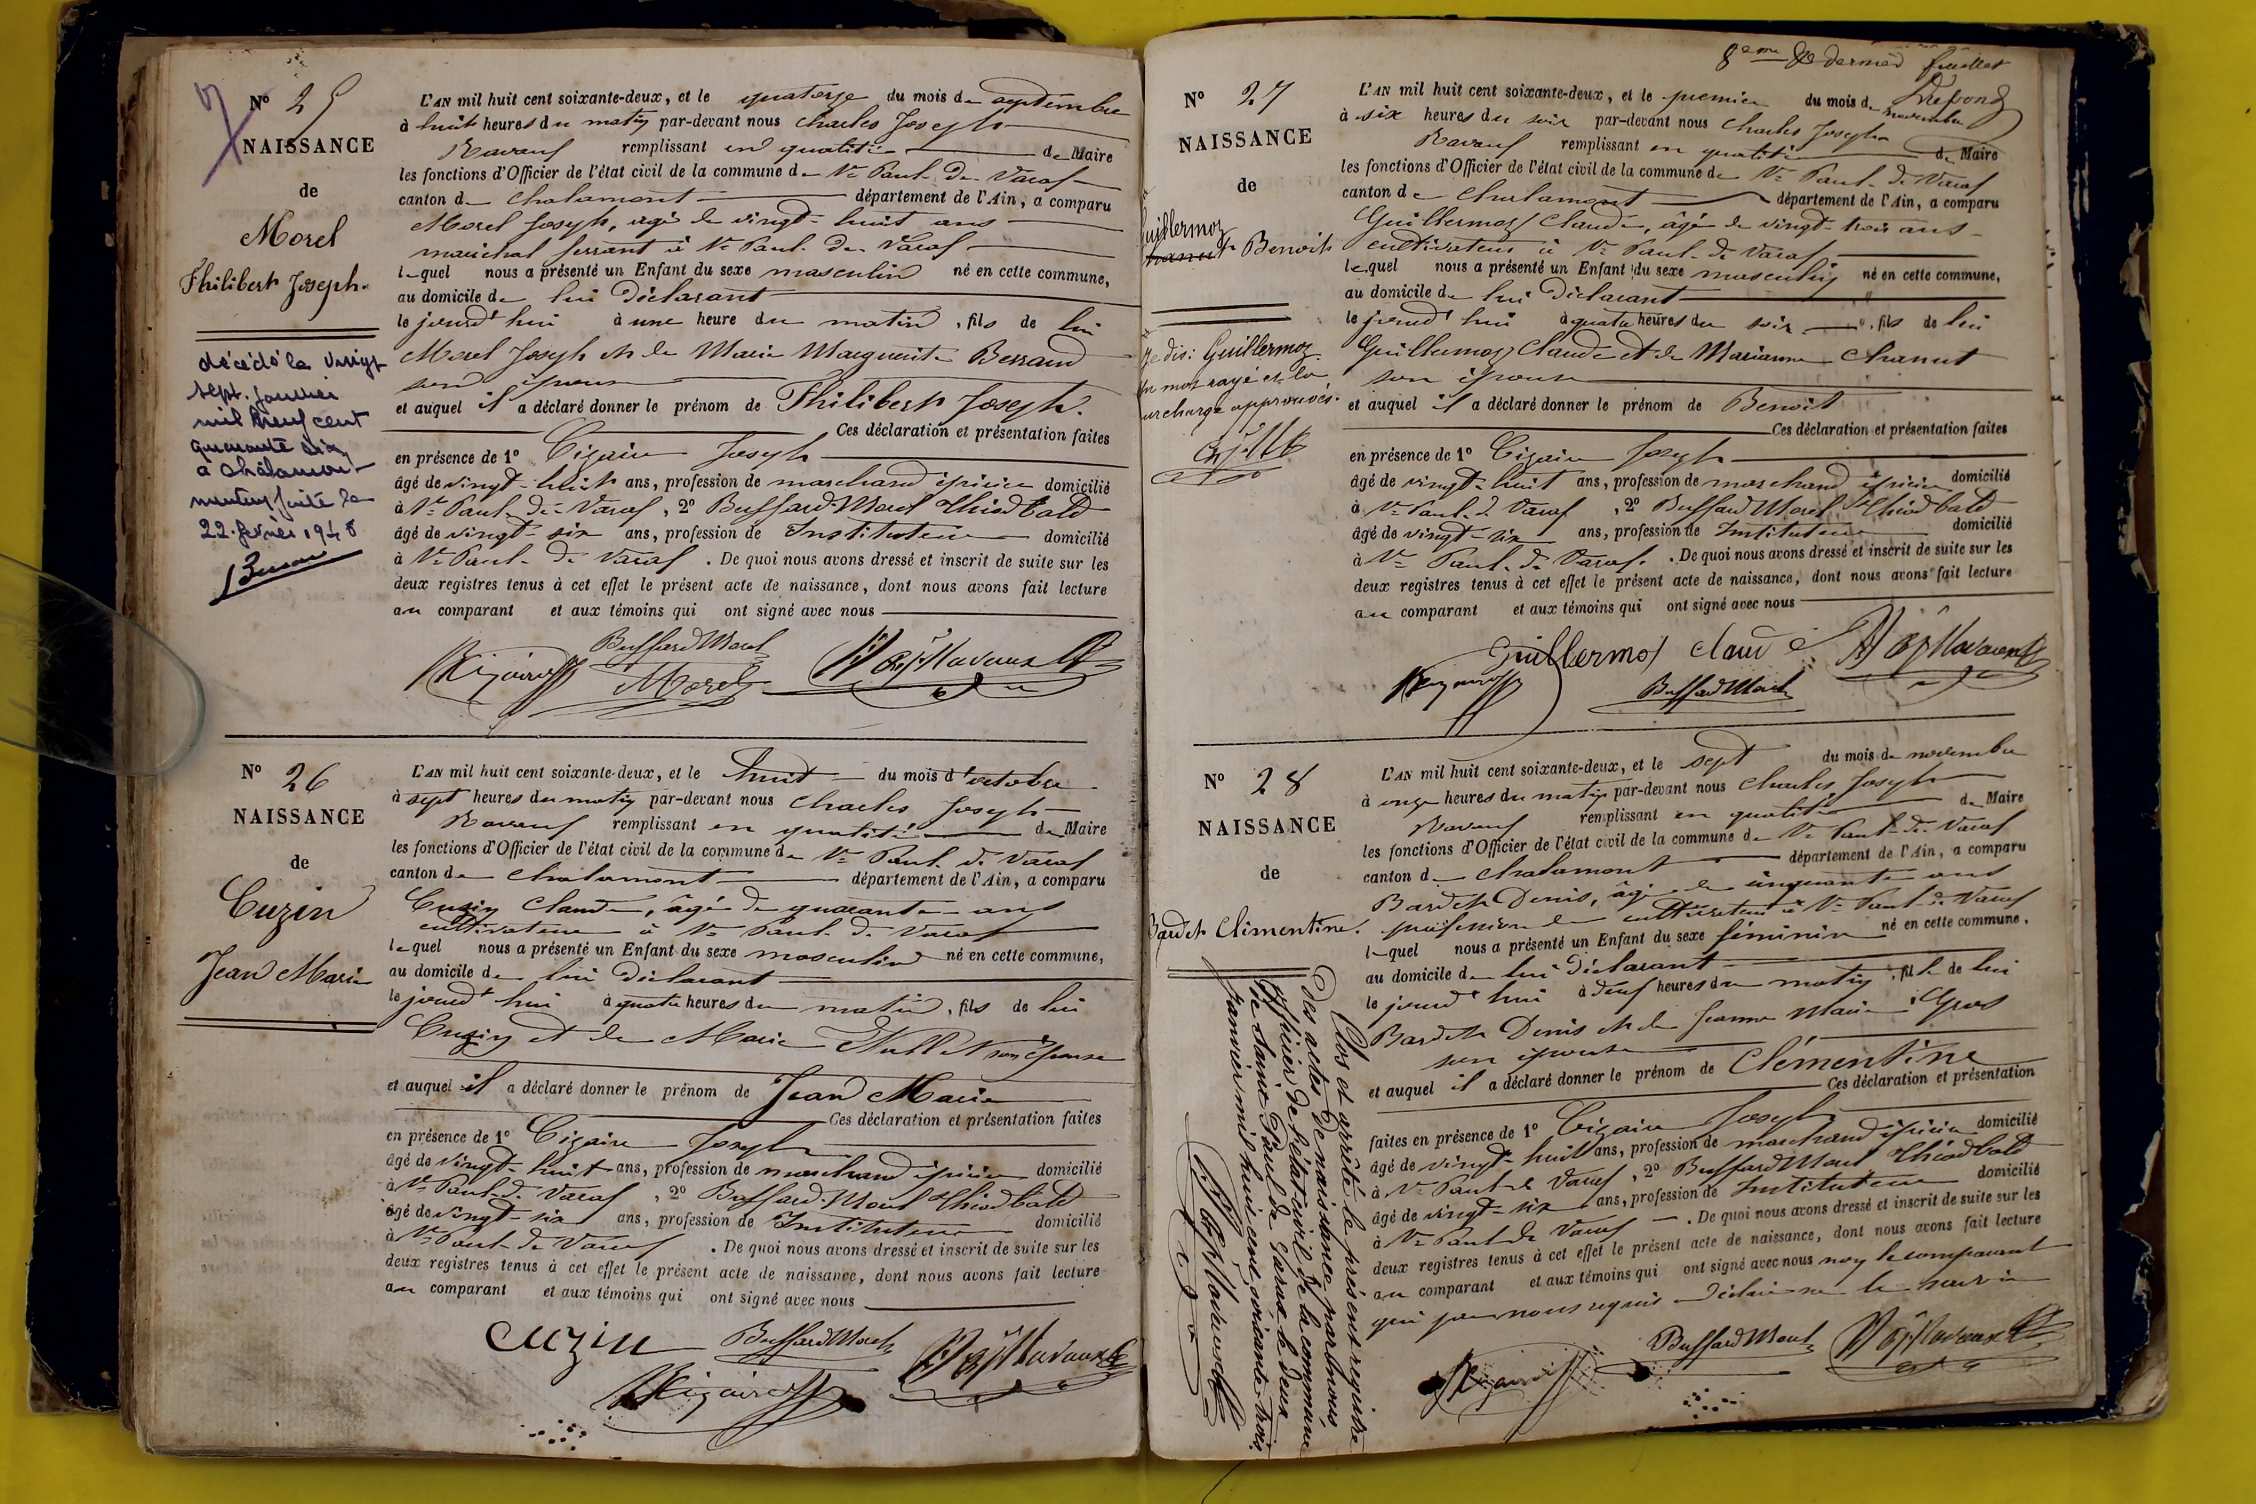 N° 25
NAISSANCE
de
Morel
Philibert Joseph.
décédé le vingt
sept janvier
mil neuf cent
quarante six
à Chalamont
mention faite le
22 février 1946
L'AN mil huit cent soixante-deux, et le quatorze du mois de septembre
à huit heures du matin par-devant nous Charles Joseph
Ravaux remplissant en qualité de Maire
les fonctions d'Officier de l'état civil de la commune de St Paul de Varax
canton de Chalamont département de l'Ain, a comparu
Morel Joseph, âgé de vingt-huit ans
maréchal ferrant à St Paul de Varax
lequel nous a présenté un Enfant du sexe masculin né en cette commune,
au domicile de lui déclarant
le jourd'hui à une heure du matin, fils de lui
Morel Joseph et de Marie Marguerite Berraud
son épouse
et auquel il a déclaré donner le prénom de Philibert Joseph.
Ces déclaration et présentation faites
en présence de 1° Cizaire Joseph
âgé de vingt-huit ans, profession de marchand épicier domicilié
à St Paul de Varax, 2° Buffard Morel Théodbald
âgé de vingt-six ans, profession de Instituteur domicilié
à St Paul de Varax. De quoi nous avons dressé et inscrit de suite sur les
deux registres tenus à cet effet le présent acte de naissance, dont nous avons fait lecture
au comparant et aux témoins qui ont signé avec nous
Buffard Morel
Morel
N° 26
NAISSANCE
de
Cuzin
Jean Marie
L'AN mil huit cent soixante-deux, et le huit du mois d'octobre
à sept heures du matin par-devant nous Charles Joseph
Ravaux remplissant en qualité de Maire
les fonctions d'Officier de l'état civil de la commune de St Paul de Varax
canton de Chalamont département de l'Ain, a comparu
Cuzin Claude, âgé de quarante ans
cultivateur à St Paul de Varax
lequel nous a présenté un Enfant du sexe masculin né en cette commune,
au domicile de lui déclarant
le jourd'hui à quatre heures du matin, fils de lui
Cuzin et de Marie Nallet son épouse
et auquel il a déclaré donner le prénom de Jean Marie
Ces déclaration et présentation faites
en présence de 1° Cizaire Joseph
âgé de vingt-huit ans, profession de marchand épicier domicilié
à St Paul de Varax, 2° Buffard Morel Théodbald
âgé de vingt-six ans, profession de Instituteur domicilié
à St Paul de Varax. De quoi nous avons dressé et inscrit de suite sur les
deux registres tenus à cet effet le présent acte de naissance, dont nous avons fait lecture
au comparant et aux témoins qui ont signé avec nous
Cuzin Buffard Morel
8eme & dernier feuillet
N° 27
NAISSANCE
de
Guillermoz
Benoit
je dis: Guillermoz
un mot rayé et la
surcharge approuvés.
L'AN mil huit cent soixante-deux, et le premier du mois de novembre
à six heures du soir par-devant nous Charles Joseph
Ravaux remplissant en qualité de Maire
les fonctions d'Officier de l'état civil de la commune de St Paul de Varax
canton de Chalamont département de l'Ain, a comparu
Guillermoz Claude, âgé de vingt-trois ans
cultivateur à St Paul de Varax
lequel nous a présenté un Enfant du sexe masculin né en cette commune,
au domicile de lui déclarant
le jourd'hui à quatre heures du soir, fils de lui
Guillermoz Claude et de Marianne Chanut
son épouse
et auquel il a déclaré donner le prénom de Benoit
Ces déclaration et présentation faites
en présence de 1° Cizaire Joseph
âgé de vingt-huit ans, profession de marchand épicier domicilié
à St Paul de Varax, 2° Buffard Morel Théodbald
âgé de vingt-six ans, profession de Instituteur domicilié
à St Paul de Varax. De quoi nous avons dressé et inscrit de suite sur les
deux registres tenus à cet effet le présent acte de naissance, dont nous avons fait lecture
au comparant et aux témoins qui ont signé avec nous
Guillermoz Claude
Buffard Morel
N° 28
NAISSANCE
de
Bardet Clémentine.
L'AN mil huit cent soixante-deux, et le sept du mois de novembre
à onze heures du matin par-devant nous Charles Joseph
Ravaux remplissant en qualité de Maire
les fonctions d'Officier de l'état civil de la commune de St Paul de Varax
canton de Chalamont département de l'Ain, a comparu
Bardet Denis, âgé de cinquante ans
profession de cultivateur à St Paul de Varax
lequel nous a présenté un Enfant du sexe féminin né en cette commune,
au domicile de lui déclarant
le jourd'hui à neuf heures du matin, fille de lui
Bardet Denis et de Jeanne Marie Gros
son épouse
et auquel il a déclaré donner le prénom de Clémentine
Ces déclaration et présentation
faites en présence de 1° Cizaire Joseph
âgé de vingt-huit ans, profession de marchand épicier domicilié
à St Paul de Varax, 2° Buffard Morel Théodbald
âgé de vingt-six ans, profession de Instituteur domicilié
à St Paul de Varax. De quoi nous avons dressé et inscrit de suite sur les
deux registres tenus à cet effet le présent acte de naissance, dont nous avons fait lecture
au comparant et aux témoins qui ont signé avec nous non le comparant
qui par nous requis a déclaré ne le savoir
Buffard Morel
Clos et arrêté le présent registre
des actes de naissance par nous
officier de l'état civil de la commune
de Saint Paul de Varax le deux
janvier mil huit cent soixante-trois.